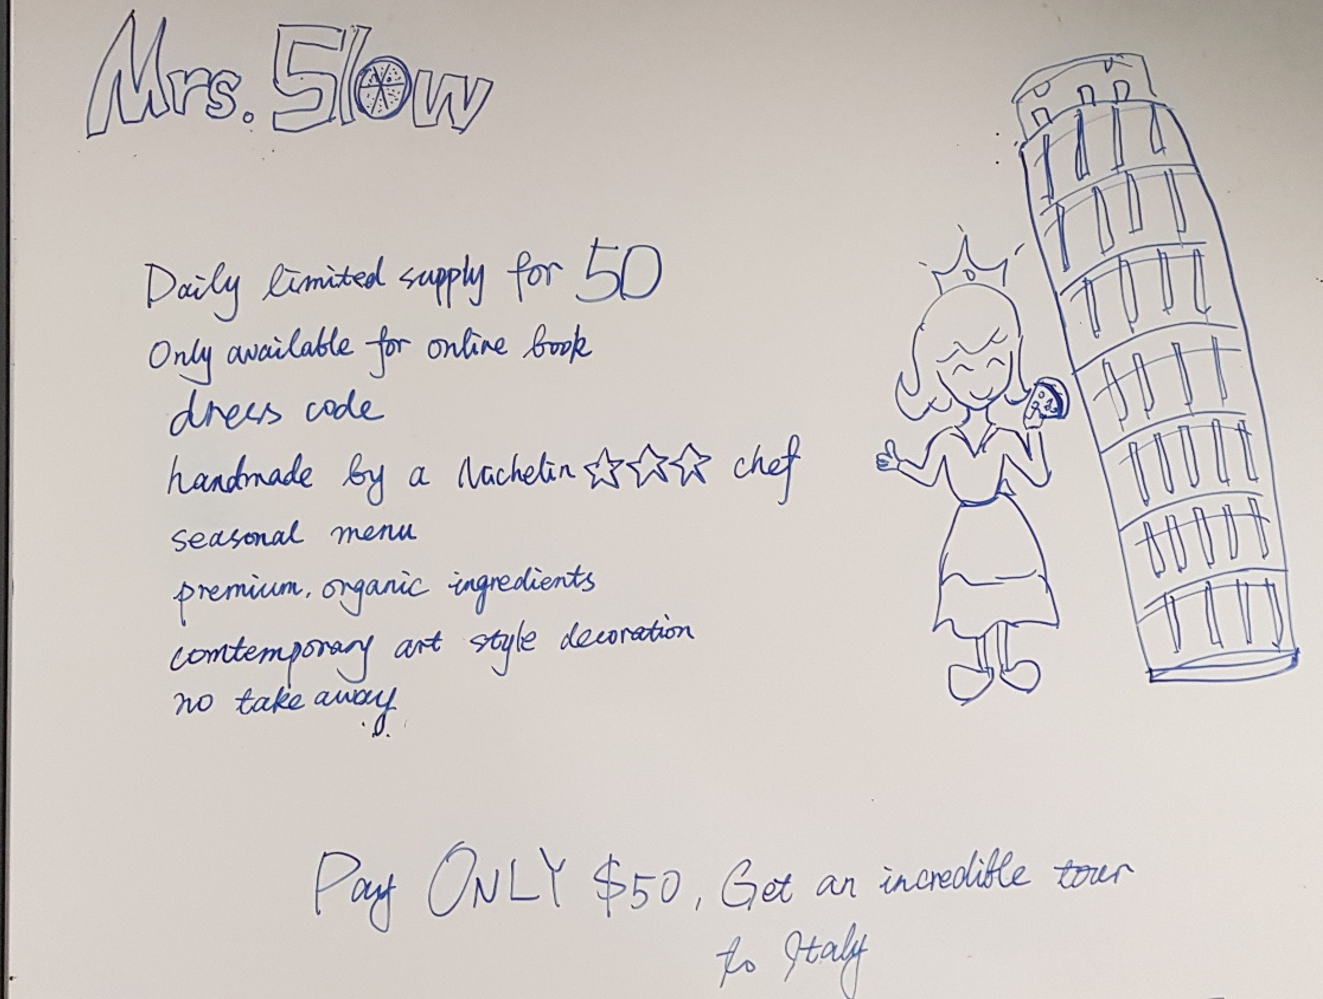 Mrs. Slow
Daily limited supply for 50
Only available for online book
dress code
handmade by a Michelin ☆☆☆ chef
seasonal menu
premium, organic ingredients
comtemporary art style decoration
no take away
Pay ONLY $50, Get an incredible tour
to Italy